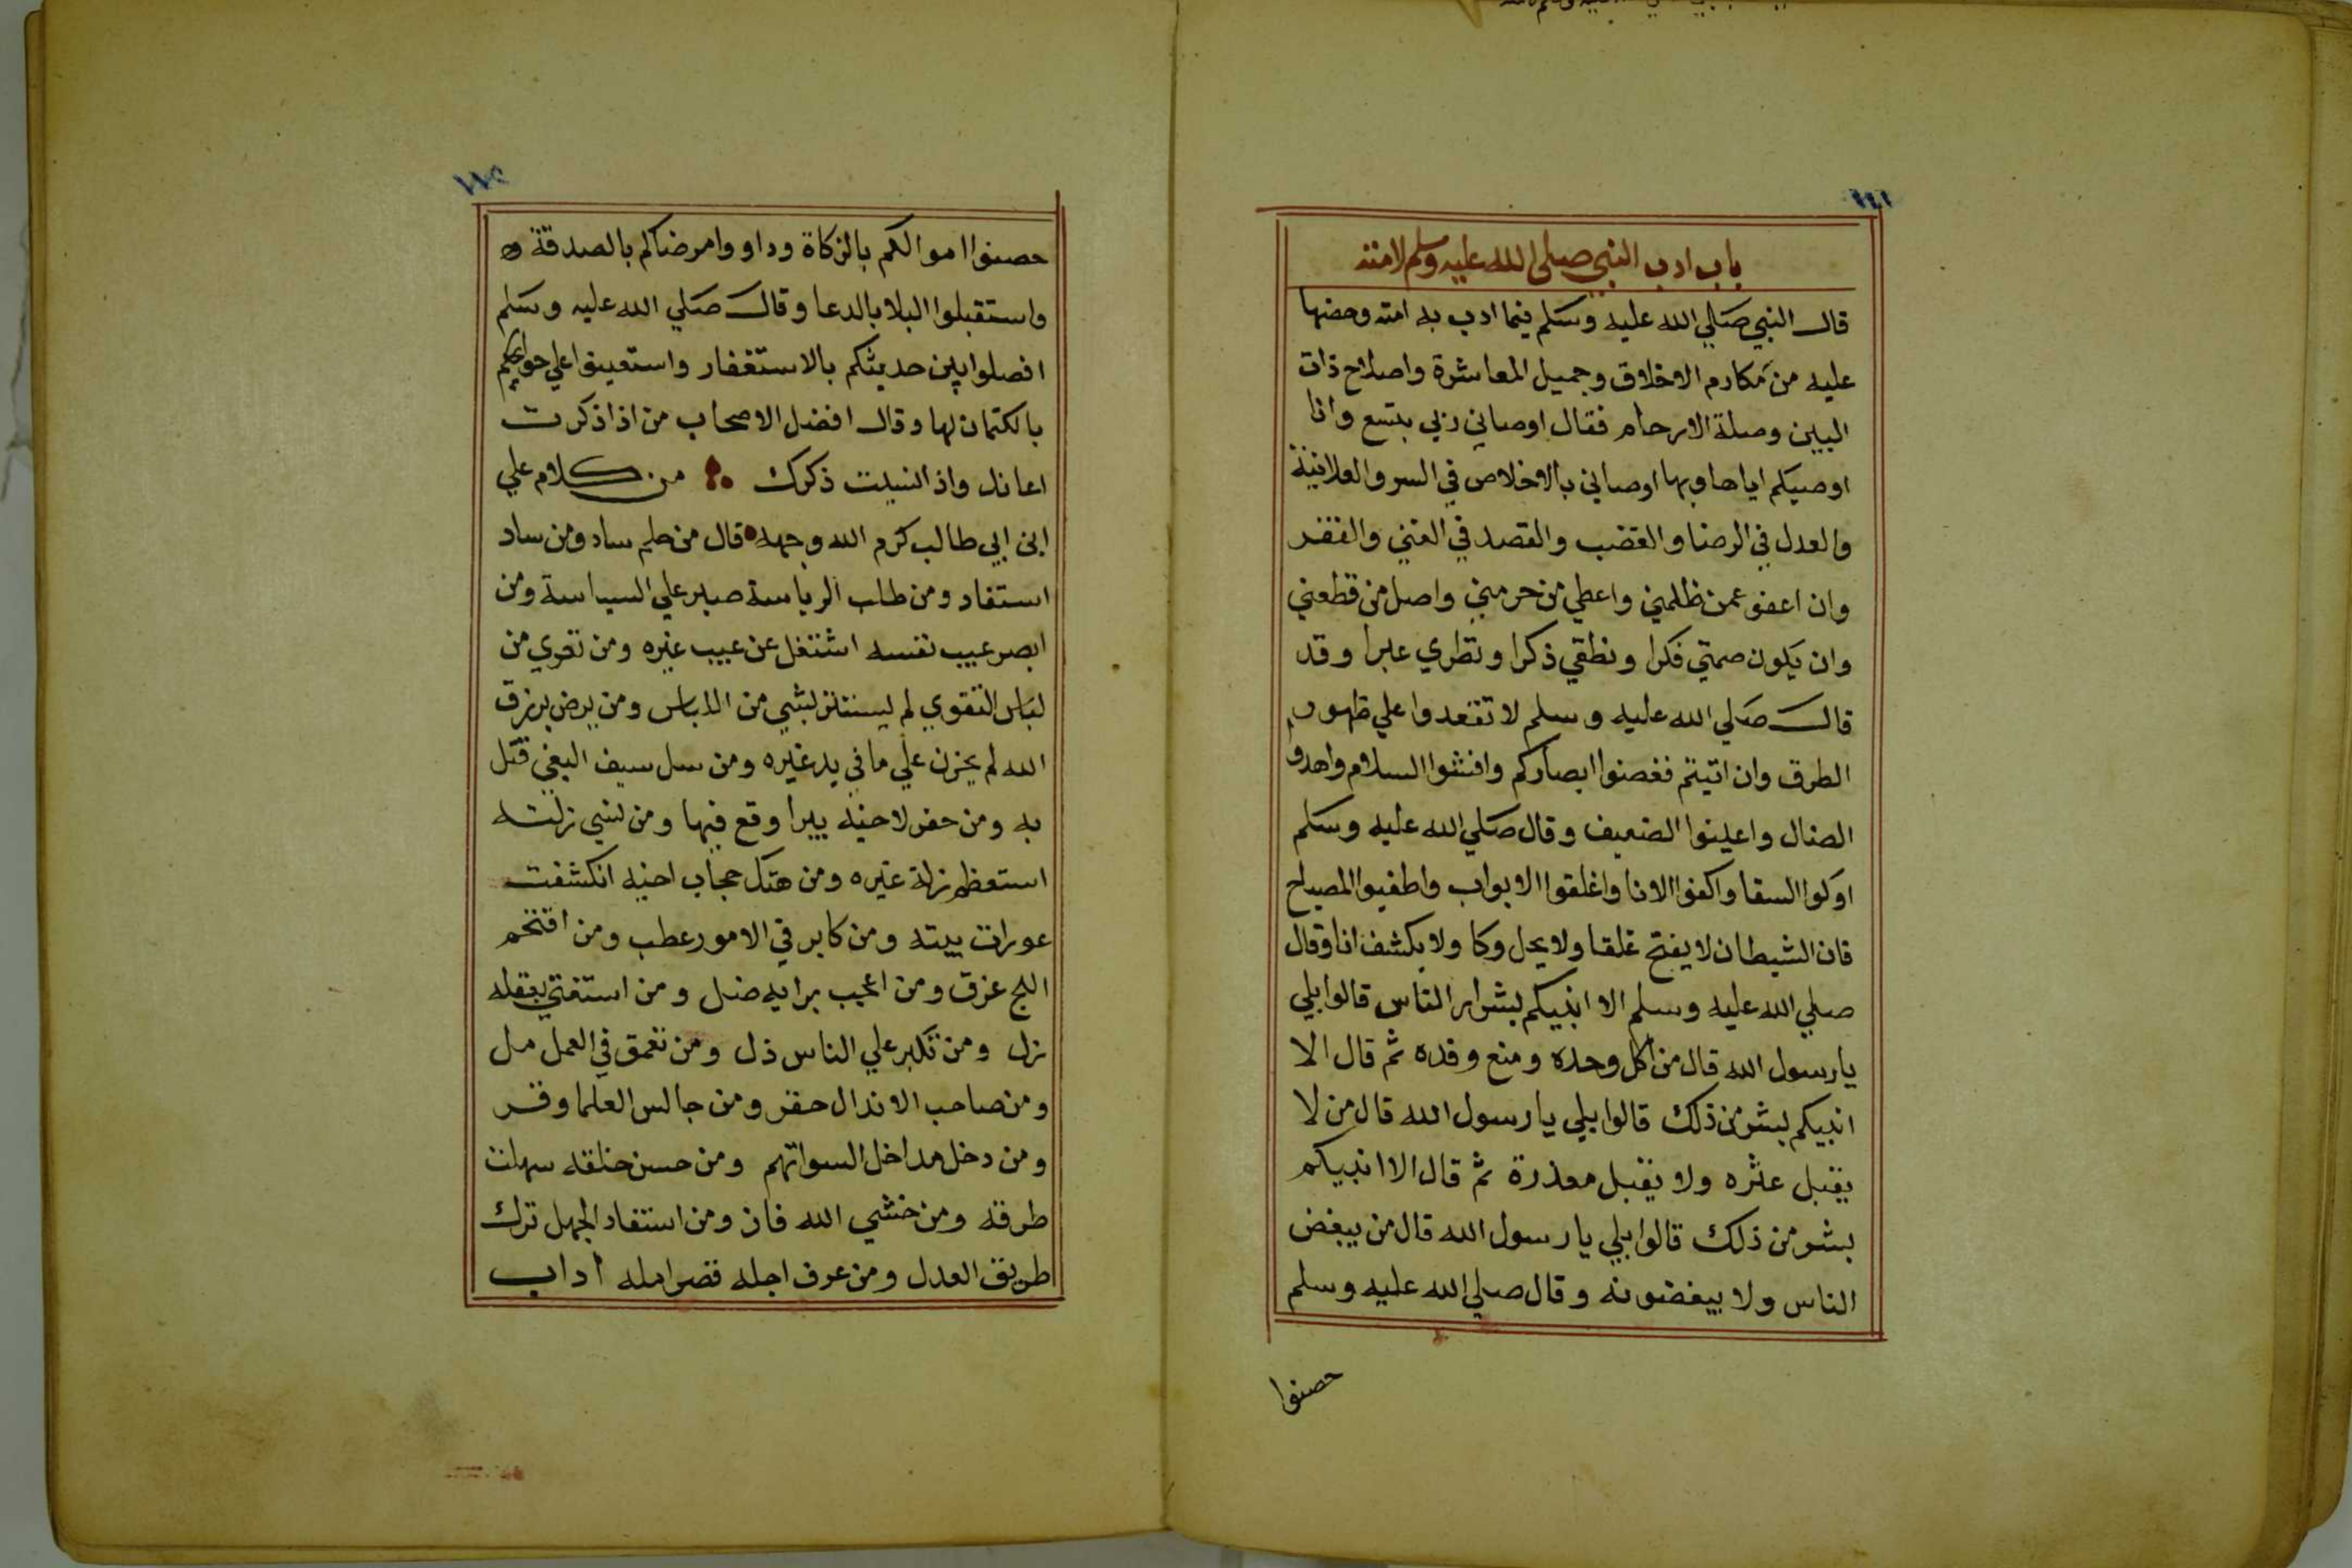 باب ادب النبي صلى الله عليه وسلم لامته
قال النبي صلي الله عليه وسلم فيما ادب به امته وحضها
عليه من مكارم الاخلاق وجميل المعاشرة واصلاح ذات
البين وصلة الارحام فقال اوصاني ربي بتسع وانا
اوصيكم اياها وبها اوصاني بالاخلاص في السر والعلانية
والعدل في الرضا والغضب والقصد في الغني والفقر
وان اعفو عمن ظلمني واعطي من حرمني واصل من قطعني
وان يكون صمتي فكرا ونطقي ذكرا ونظري عبرا وقد
قال صلي الله عليه وسلم لا تقعدوا علي ظهور
الطرق وان اتيتم فغضوا ابصاركم وافشوا السلام واهدو
الضال واعينوا الضعيف وقال صلي الله عليه وسلم
اوكوا السقا واكفوا الانا واغلقوا الابواب واطفيوا المصباح
فان الشيطان لا يفتح غلقا ولا يحل وكا ولا يكشف انا وقال
صلي الله عليه وسلم الا انبيكم بشرار الناس قالوا بلي
يا رسول الله قال من اكل وحده ومنع وفده ثم قال الا
انبيكم بشر من ذلك قالوا بلي يا رسول الله قال من لا
يقبل عثره ولا يقبل معذرة ثم قال الا انبيكم
بشر من ذلك قالوا بلي يا رسول الله قال من يبغض
الناس ولا يبغضونه وقال صلي الله عليه وسلم
حصنوا
حصنوا اموالكم بالزكاة وداووا مرضاكم بالصدقة و
واستقبلوا البلا بالدعا وقال صلي الله عليه وسلم
افصلوا بين حديثكم بالاستغفار واستعينوا علي حوايجكم
بالكتمان لها وقال افضل الاصحاب من اذا ذكرت
اعانك واذا نسيت ذكرك من كلام علي
ابن ابي طالب كرم الله وجهه قال من حلم ساد ومن ساد
استفاد ومن طلب الرياسة صبر علي السياسة ومن
ابصر عيب نفسه اشتغل عن عيب غيره ومن تعري من
لباس التقوي لم يستتر بشي من اللباس ومن يرض برزق
الله لم يحزن علي ما في يد غيره ومن سل سيف البغي قتل
به ومن حفر لاخيه بيرا وقع فيها ومن نسي زلته
استعظم زلة غيره ومن هتك حجاب اخيه انكشفت
عورات بيته ومن كابر في الامور عطب ومن اقتحم
اللج غرق ومن اعجب برايه ضل ومن استغني بعقله
زل ومن تكبر علي الناس ذل ومن تعمق في العمل مل
ومن صاحب الانذال حقر ومن جالس العلما وقر
ومن دخل مداخل السو اتهم ومن حسن خلقه سهلت
طرقه ومن خشي الله فاز ومن استفاد الجهل ترك
طريق العدل ومن عرف اجله قصر امله اداب